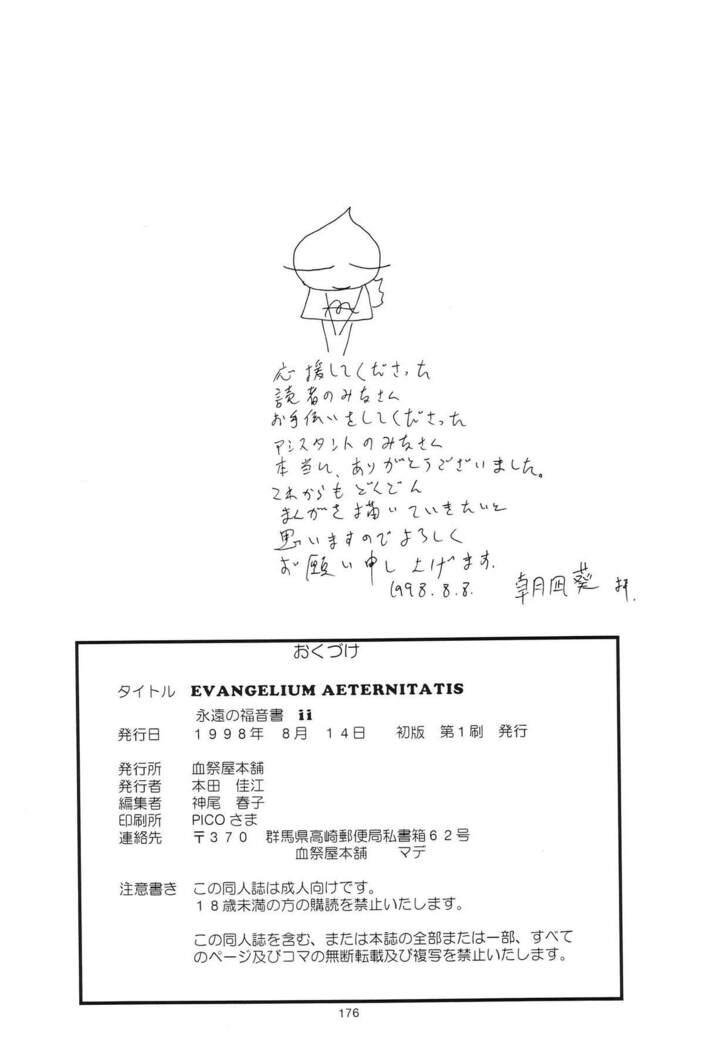 応援してくださった
読者のみなさん
お手伝いをしてくださった
アシスタントのみなさん
本当に、ありがとうございました。
これからもどくどん
まんがを描いていきたいと
思いますのでよろしく
お願い申し上げます。
1998.8.8. 朝凪葵 拝.
おくづけ
タイトル EVANGELIUM AETERNITATIS
永遠の福音書 ii
発行日 1998年 8月 14日 初版 第1刷 発行
発行所 血祭屋本舗
発行者 本田 佳江
編集者 神尾 春子
印刷所 PICOさま
連絡先 〒370 群馬県高崎郵便局私書箱62号
血祭屋本舗 マデ
注意書き この同人誌は成人向けです。
18歳未満の方の購読を禁止いたします。
この同人誌を含む、または本誌の全部または一部、すべて
のページ及びコマの無断転載及び複写を禁止いたします。
176